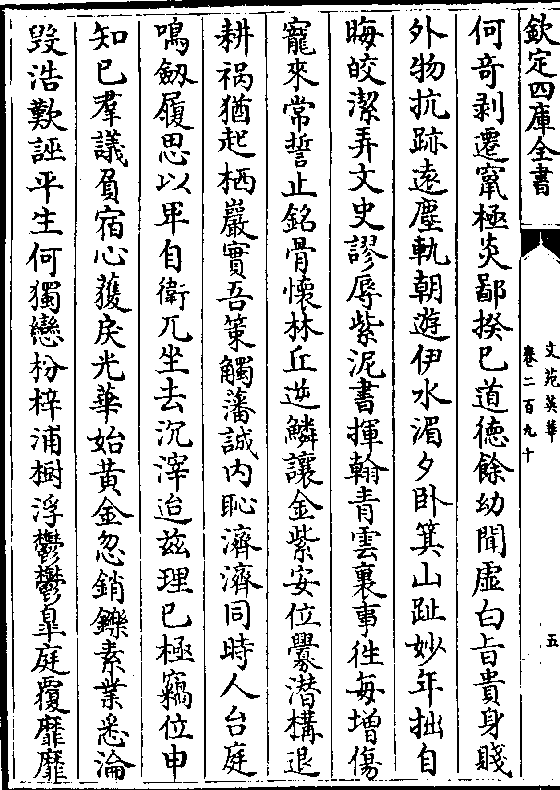 欽定四庫全書
文苑英華
卷二百九十
五
何奇剥遷竄極炎鄙揆已道德餘幼聞虛白旨貴身賤
外物抗跡逺塵軌朝遊伊水湄夕卧箕山趾妙年拙自
晦皎潔弄文史謬辱紫泥書揮翰青雲裏事徃每增傷
寵來常誓止銘骨懷林丘逆鱗讓金紫安位釁潜構退
耕禍猶起栖巖實吾策觸藩誠内恥濟濟同時人台庭
鳴劔履思以卑自衛兀坐去沉滓迨兹理已極竊位申
知已羣議負宿心䕶戾光華始黄金忽銷鑠素業悉淪
毁浩歎誣平生何獨戀枌梓浦樹浮鬱鬱臯庭覆靡靡